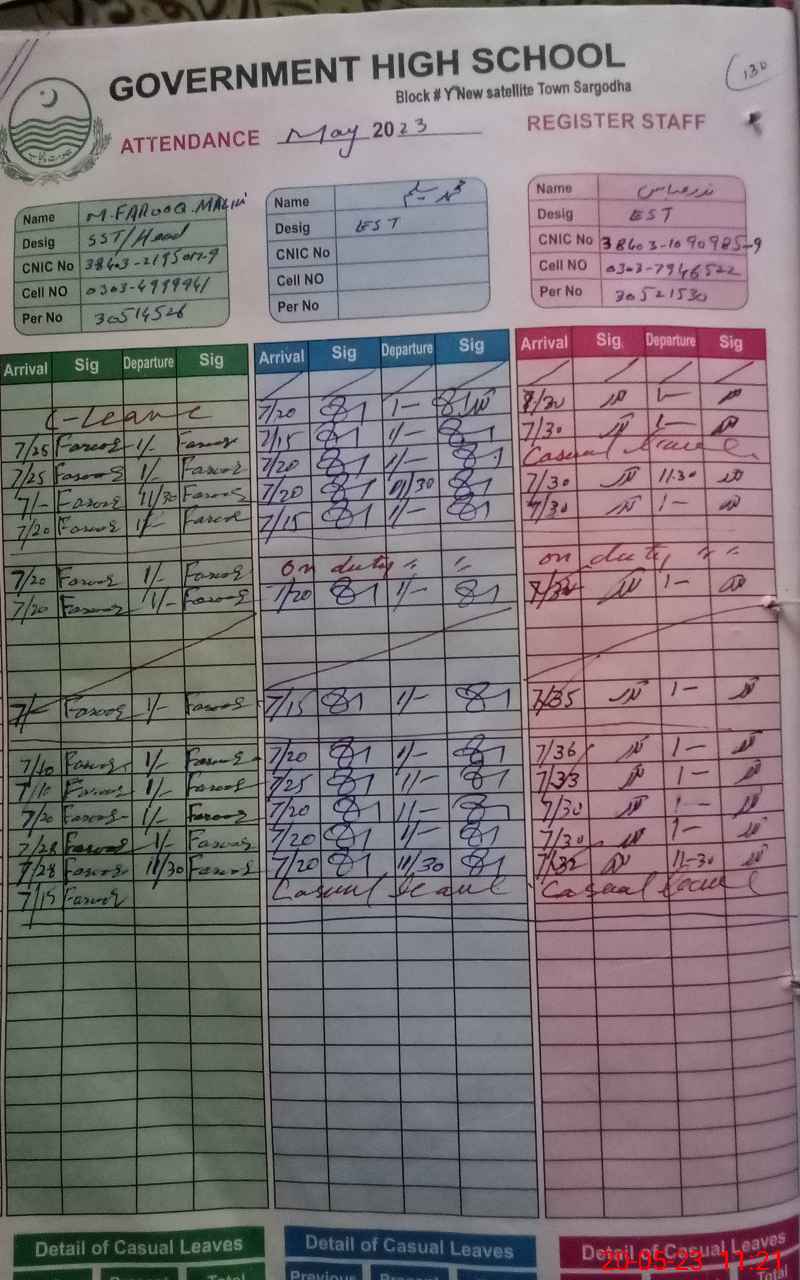 GOVERNMENT HIGH SCHOOL
130
Block # Y New satellite Town Sargodha
ATTENDANCE May 2023 REGISTER STAFF
Name M. FAROOQ. MALIK
Desig SST/Head
CNIC No
Cell NO
Per No 30514526
Name محمد سلیم
Desig EST
CNIC No
Cell NO
Per No
Name نذر عباس
Desig EST
CNIC No 38403-1090985-9
Cell NO 0303-7946522
Per No 30521530
Arrival Sig Departure Sig Arrival Sig Departure Sig Arrival Sig Departure Sig
C-Leave 7/20 1- 7/30 1-
7/25 Farooq 1/- Farooq 7/15 1/- 7/30 1-
7/25 Farooq 1/- Farooq 7/20 1/- Casual Leave
7/- Farooq 11/30 Farooq 7/20 11/30 7/30 11-30
7/20 Farooq 1/- Farooq 7/15 1/- 7/30 1-
7/20 Farooq 1/- Farooq On duty " " on duty " "
7/20 Farooq 1/- Farooq 7/20 1/- 1-
7/- Farooq 1/- Farooq 7/15 1/- 7/35 1-
7/10 Farooq 1/- Farooq 7/20 1/- 7/36 1-
7/10 Farooq 1/- Farooq 7/25 1/- 7/33 1-
7/20 Farooq 1/- Farooq 7/20 1/- 7/30 1-
7/28 Farooq 1/- Farooq 7/20 1/- 7/30 1-
7/28 Farooq 11/30 Farooq 7/20 11/30 7/32 11-30
7/15 Farooq Casual Leave Casual Leave
Detail of Casual Leaves Detail of Casual Leaves Detail of Casual Leaves
Present Total Previous Present Total
20-05-23 11:21